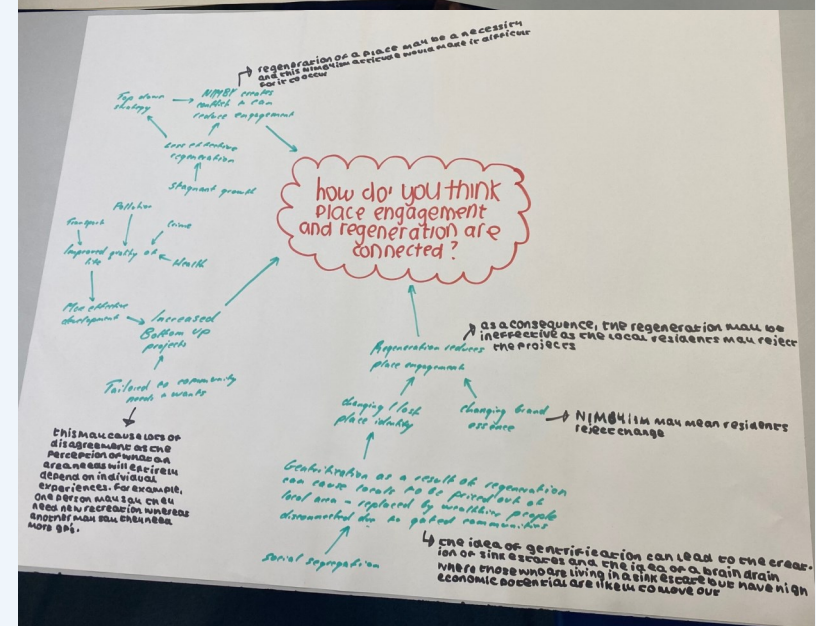 regeneration of a place may be a necessity
and this NIMBYism attitude would make it difficult
for it to occur
Top down
strategy
NIMBY creates
conflict & can
reduce engagement
Less effective
regeneration
Stagnant growth
how do you think
place engagement
and regeneration are
connected?
Pollution
Transport
Crime
Improved quality of
life
Health
More effective
development
Increased
Bottom up
projects
Tailored to community
needs & wants
this may cause lots of
disagreement as the
perception of what an
area needs will entirely
depend on individual
experiences. For example,
one person may say they
need new recreation whereas
another may say they need
more
Regeneration reduces
place engagement
as a consequence, the regeneration may be
ineffective as the local residents may reject
the projects
changing / lost
place identity
changing brand
essence
NIMBYism may mean residents
reject change
Gentrification as a result of regeneration
can cause locals to be priced out of
local area - replaced by wealthier people
disconnected due to gated communities
social segregation
the idea of gentrification can lead to the creat-
ion of sink estates and the idea of a brain drain
where those who are living in a sink estate but have high
economic potential are likely to move out